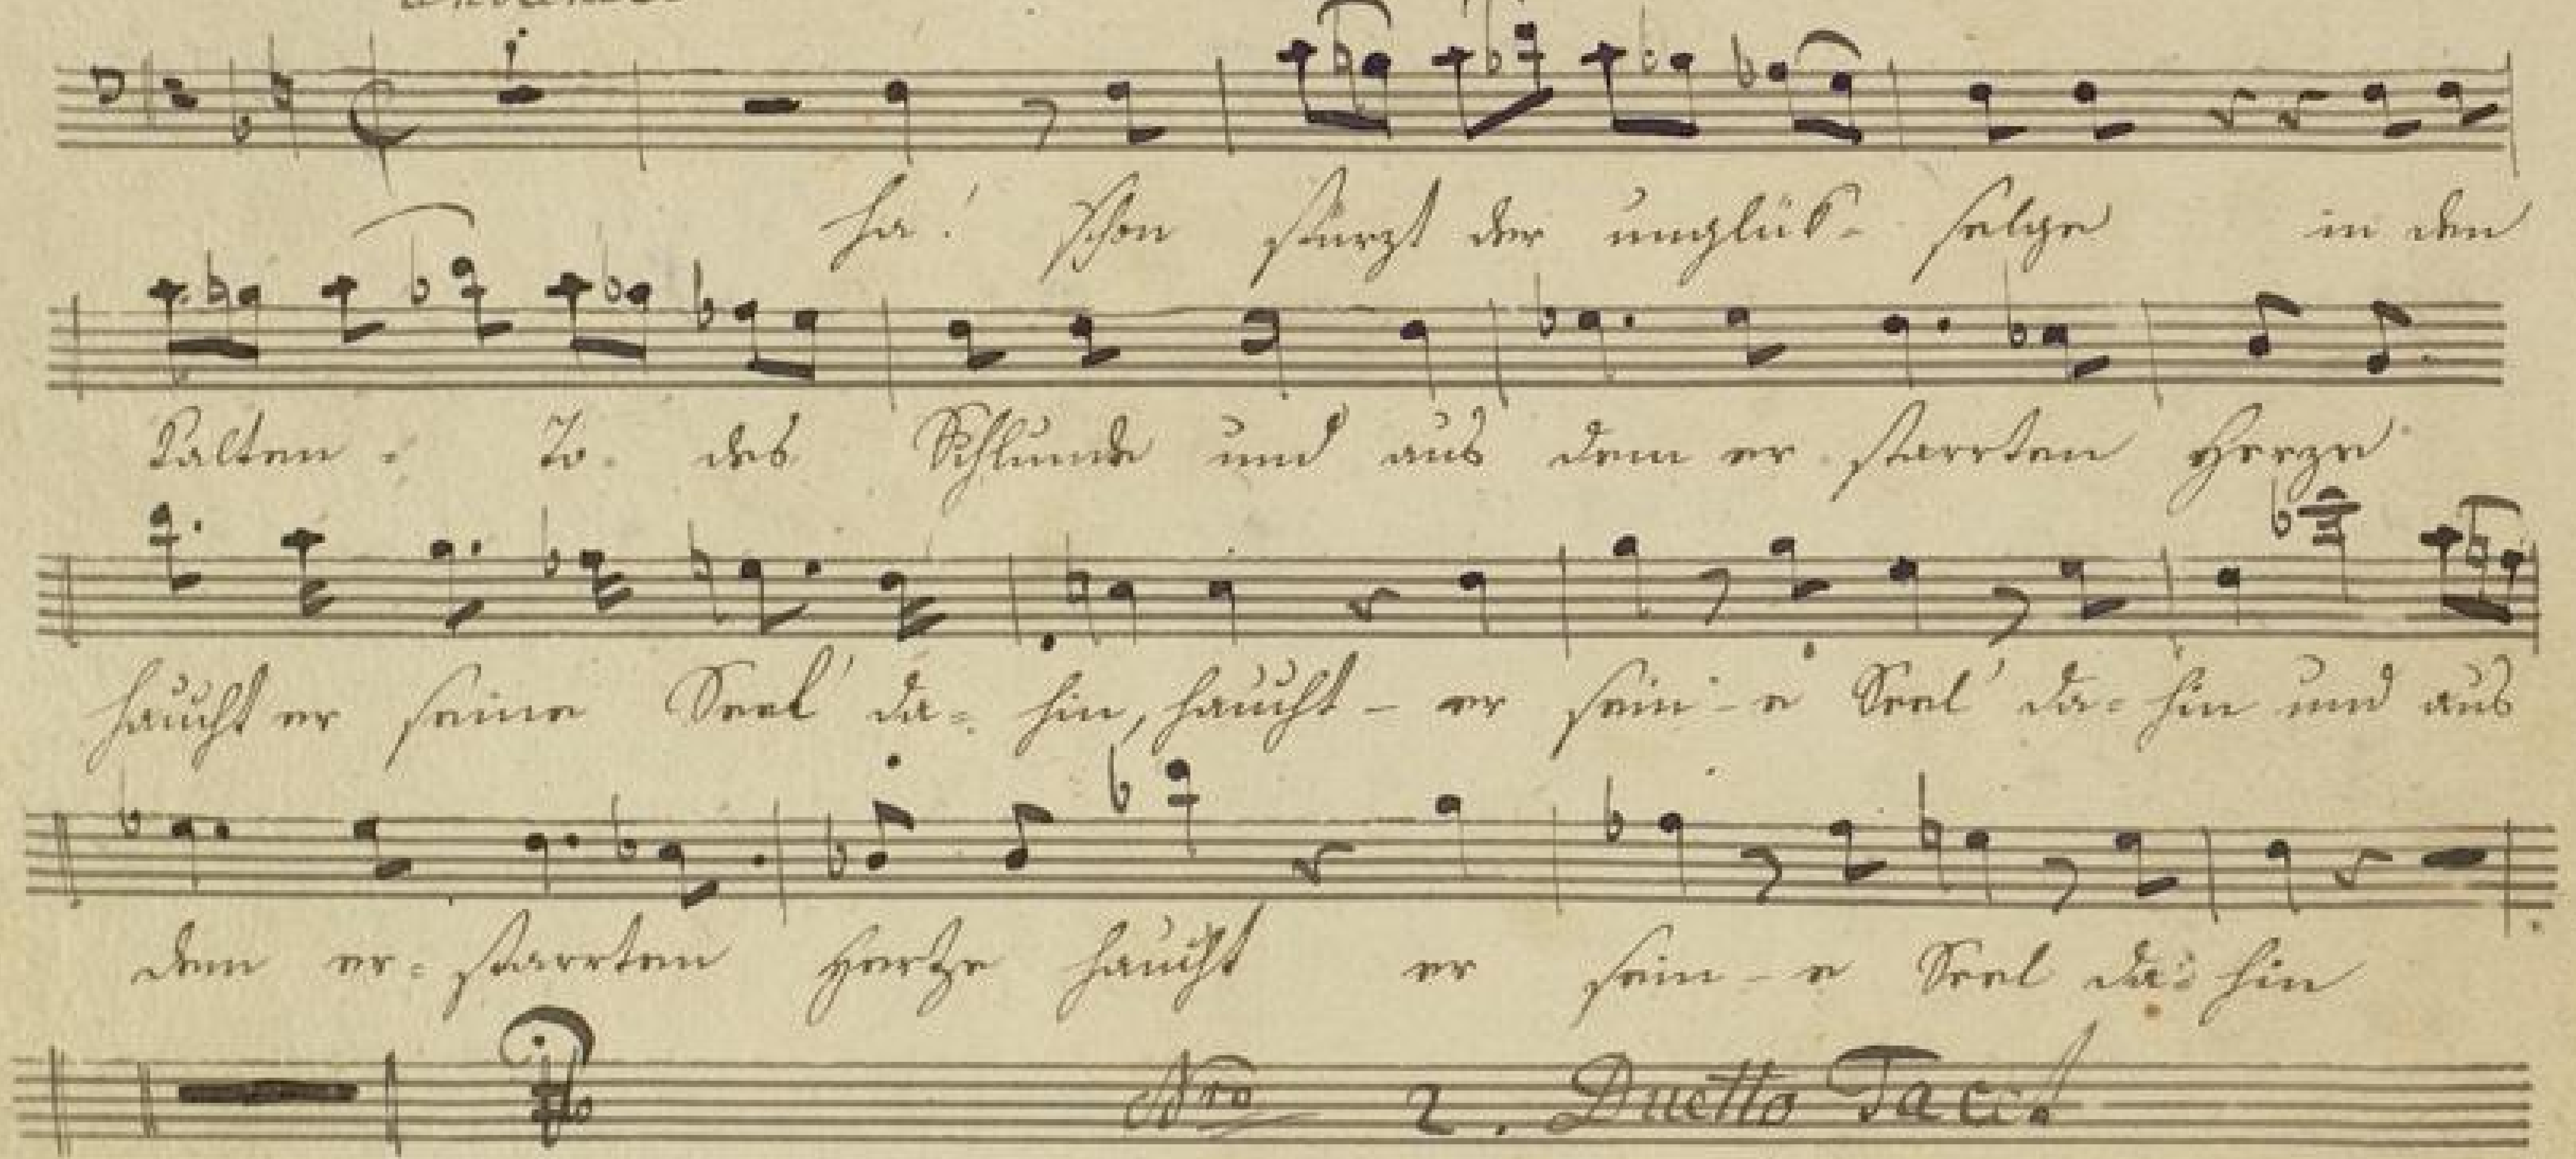 ha! schon stürzt der unglük- selge in den
kalten - To- des Schlunde und aus dem er starrten Herze
haucht er seine Seel' da= hin, haucht - er sein - e Seel' da= hin und aus
dem er= starrten Hertze haucht er sein - e Seel da= hin
Nro 2. Duetto Tacet